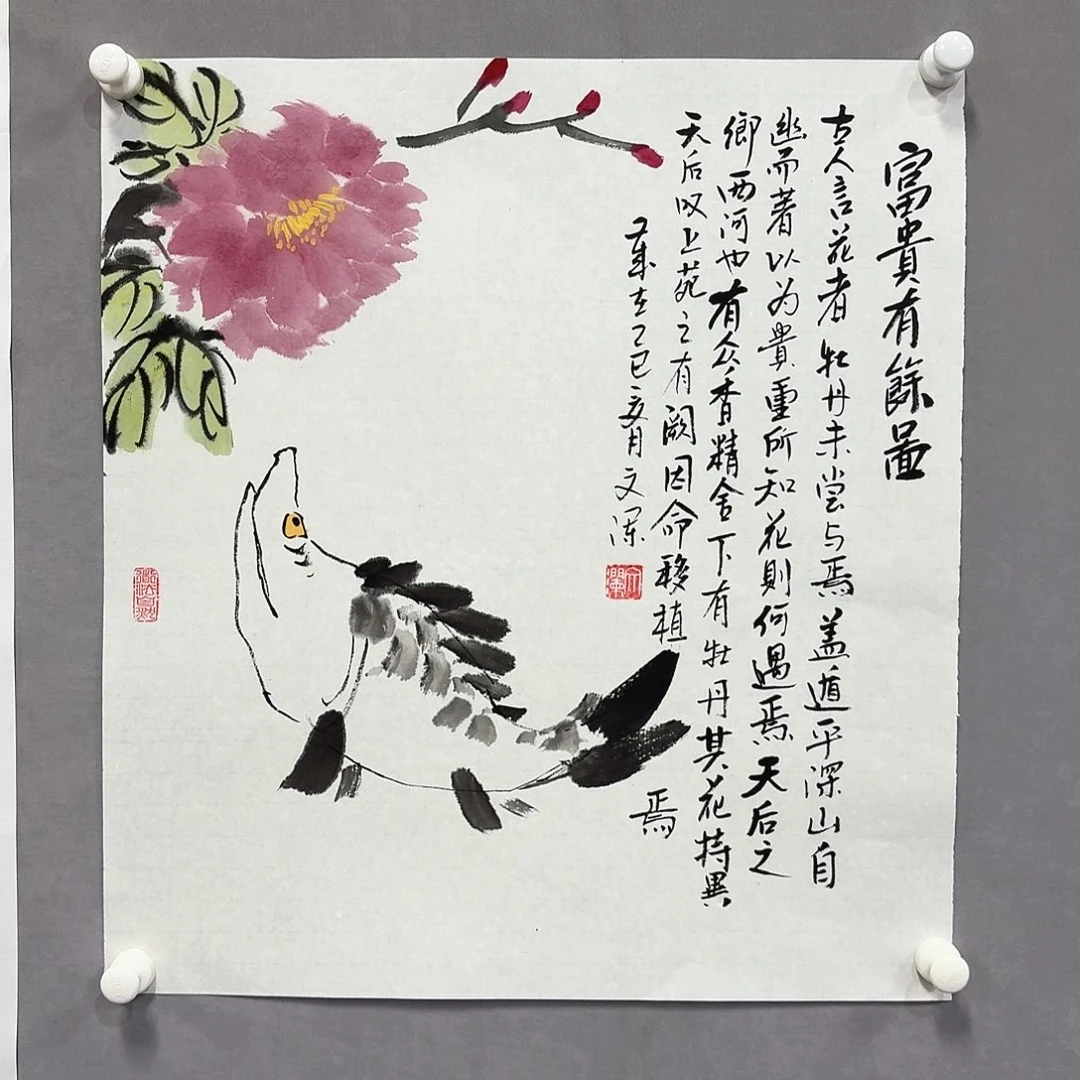 富貴有餘啚
古人言花者牡丹未尝与焉盖遁乎深山自
幽而著以为貴重所知花則何遇焉天后之
鄉西河也有众香精舍下有牡丹其花特異
天后叹上苑之有阙因命移植
焉
歲在乙巳亥月文澜
文瀾